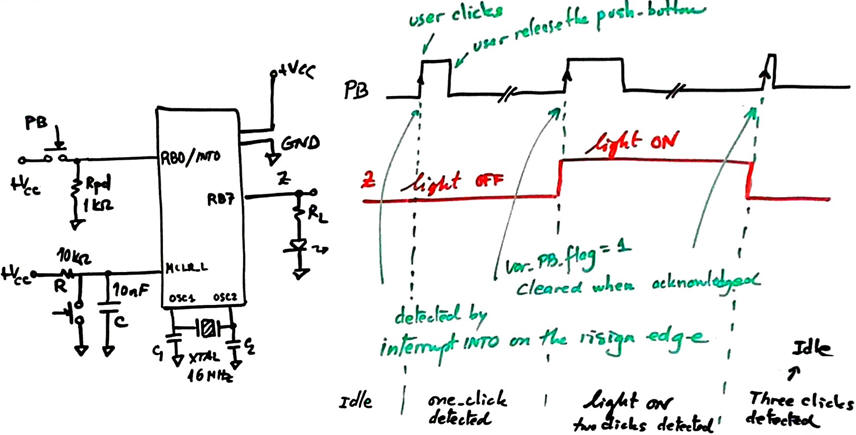 user clicks
user release the push-button
+Vcc
PB
GND
RB0/INT0
Z
RB7
+Vcc
Rpd
1kΩ
RL
10kΩ
+Vcc
R
MCLR_L
10nF
C
OSC1 OSC2
C1
C2
XTAL
16MHz
PB
light ON
Z
light OFF
var_PB_flag = 1
cleared when acknowledged
detected by
interrupt INT0 on the risign edge
Idle
Idle
one_click
detected
light on
two clicks detected
Three clicks
detected